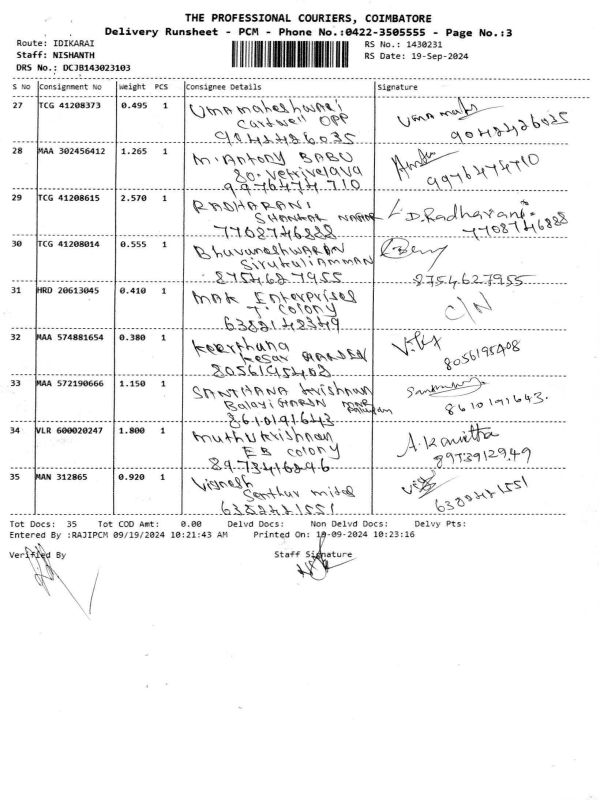 THE PROFESSIONAL COURIERS, COIMBATORE
Delivery Runsheet - PCM - Phone No.:0422-3505555 - Page No.:3
Route: IDIKARAI RS No.: 1430231
Staff: NISHANTH RS Date: 19-Sep-2024
DRS No.: DCJB143023103
S No Consignment No Weight PCS Consignee Details Signature
27 TCG 41208373 0.495 1 Umamaheshwari
Cartwell OPP
9042426035 9042426035
28 MAA 302456412 1.265 1 M. Antony BABU
80. Vetrivelava
9976474710 9976474710
29 TCG 41208615 2.570 1 RADHARANI
SHANKAR NAGAR D. Radharani
7708746888 7708746888
30 TCG 41208014 0.555 1 Bhuvaneshwaran
Sirukaliamman
8754627955 8754627955
31 HRD 20613045 0.410 1 MAK Enterprises
T. Colony C/N
6382142349
32 MAA 574881654 0.380 1 Keerthana
Kesar GARDEN
8056195408 8056195408
33 MAA 572190666 1.150 1 SANTHANA Krishnan
Balaji GARDN
8610191643 8610191643.
34 VLR 600020247 1.800 1 Muthukrishnan A. Kavitha
EB colony
8973416296 8973912949
35 MAN 312865 0.920 1 Vignesh
Senthur
6382421551 6382421551
Tot Docs: 35 Tot COD Amt: 0.00 Delvd Docs: Non Delvd Docs: Delvy Pts:
Entered By :RAJIPCM 09/19/2024 10:21:43 AM Printed On: 19-09-2024 10:23:16
Verified By Staff Signature